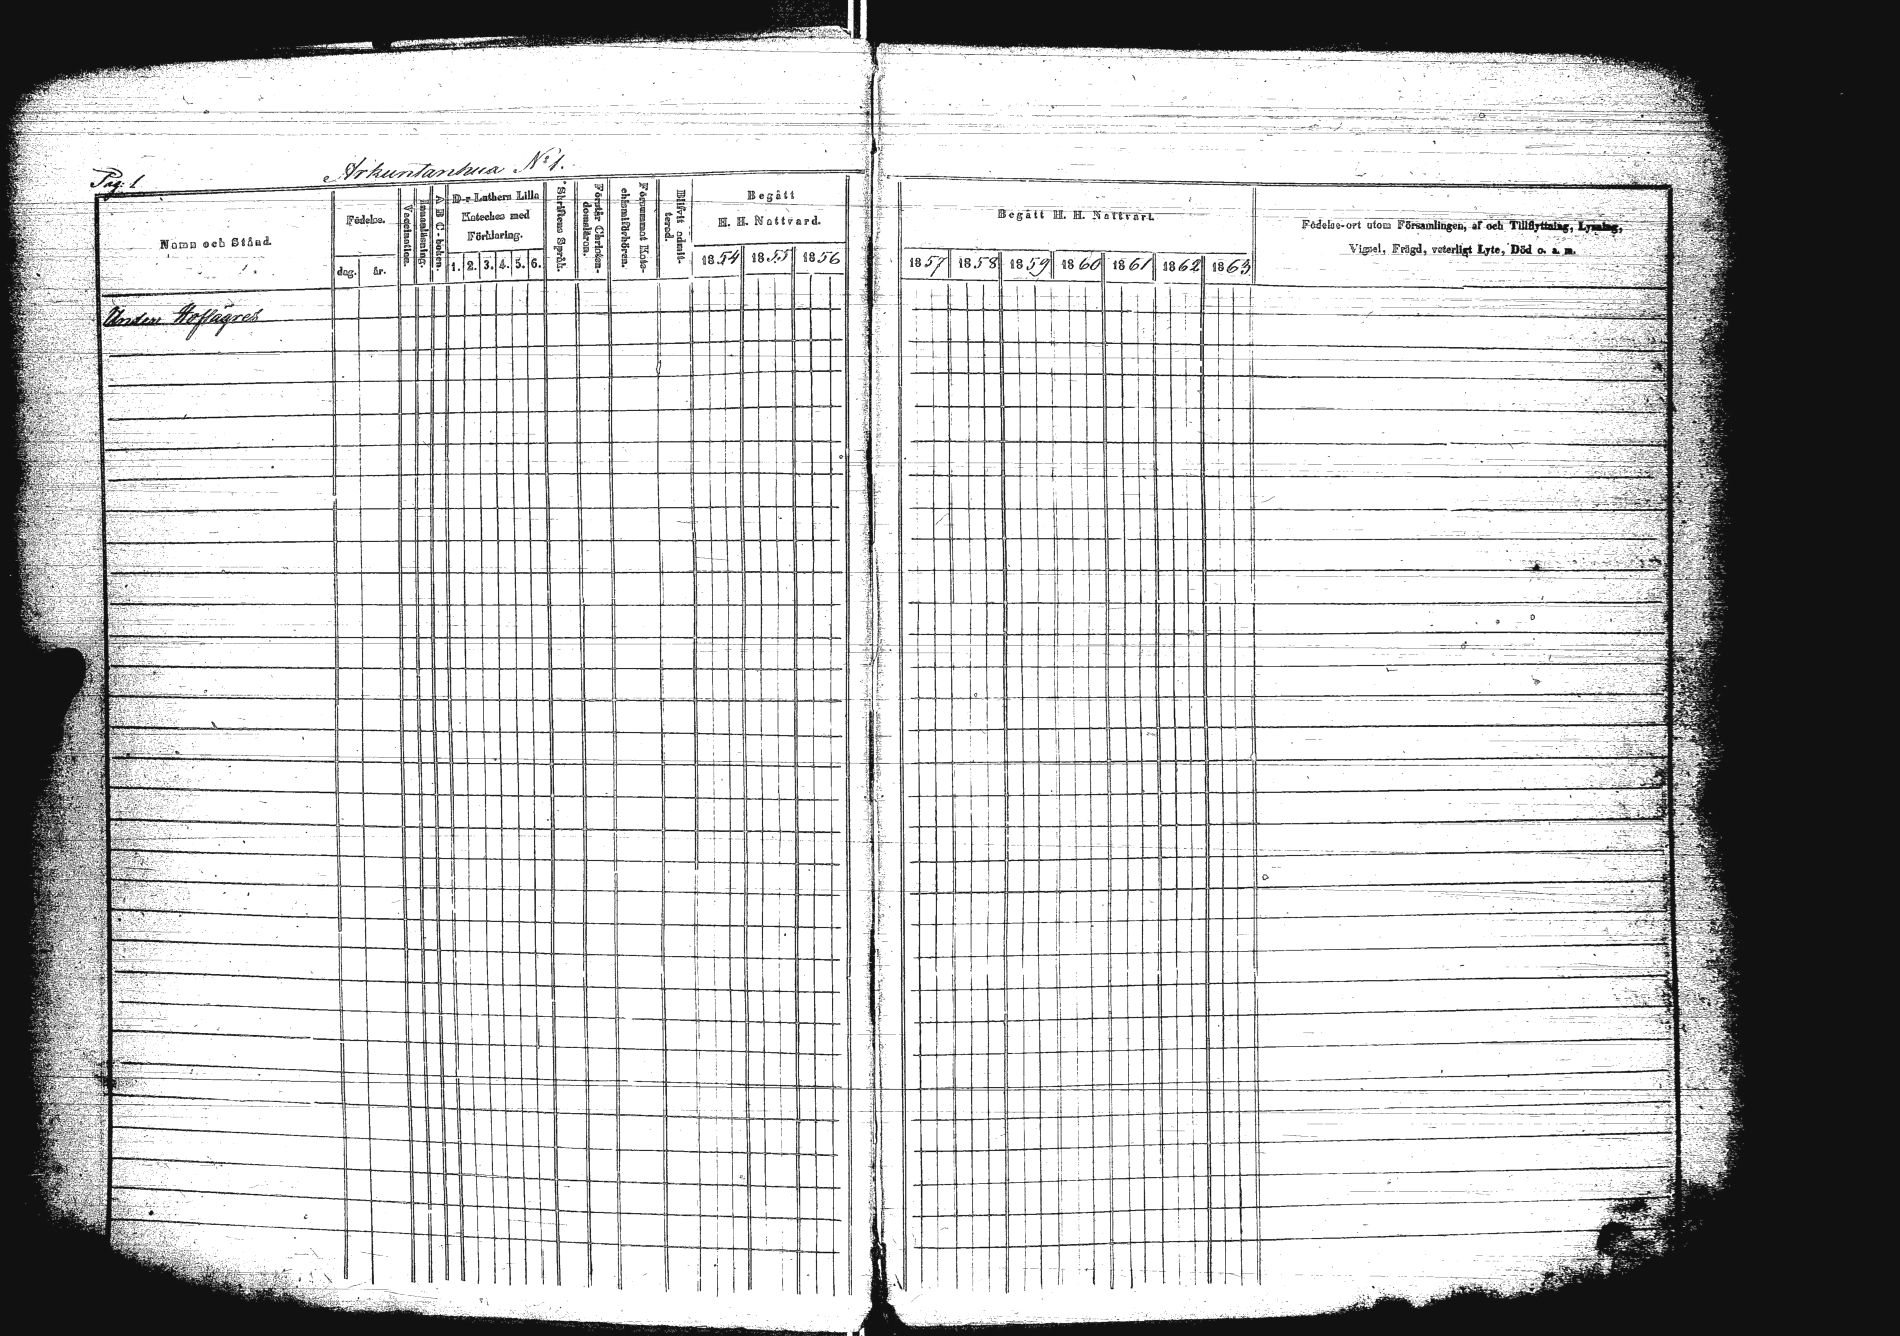 Pag: 1
Arkuntanhua No 1.
Namn och Stånd.
Födelse.
dag. år.
Vaccination.
Innanläsning.
A B C-boken.
D-r Luthers Lilla
Kateches med
Förklaring.
1. 2. 3. 4. 5. 6.
Skriftens Språk.
Förstår Christen-
domsläran.
Försummat Kate-
chismiförhören.
Blifvit admit-
terad.
Begått
H. H. Nattvard.
1854 1855 1856
Begått H. H. Nattvart.
1857 1858 1859 1860 1861 1862 1863
Födelse-ort utom Församlingen, af och Tillflyttning, Lysning,
Vigsel, Frägd, veterligt Lyte, Död o. a. m.
Under